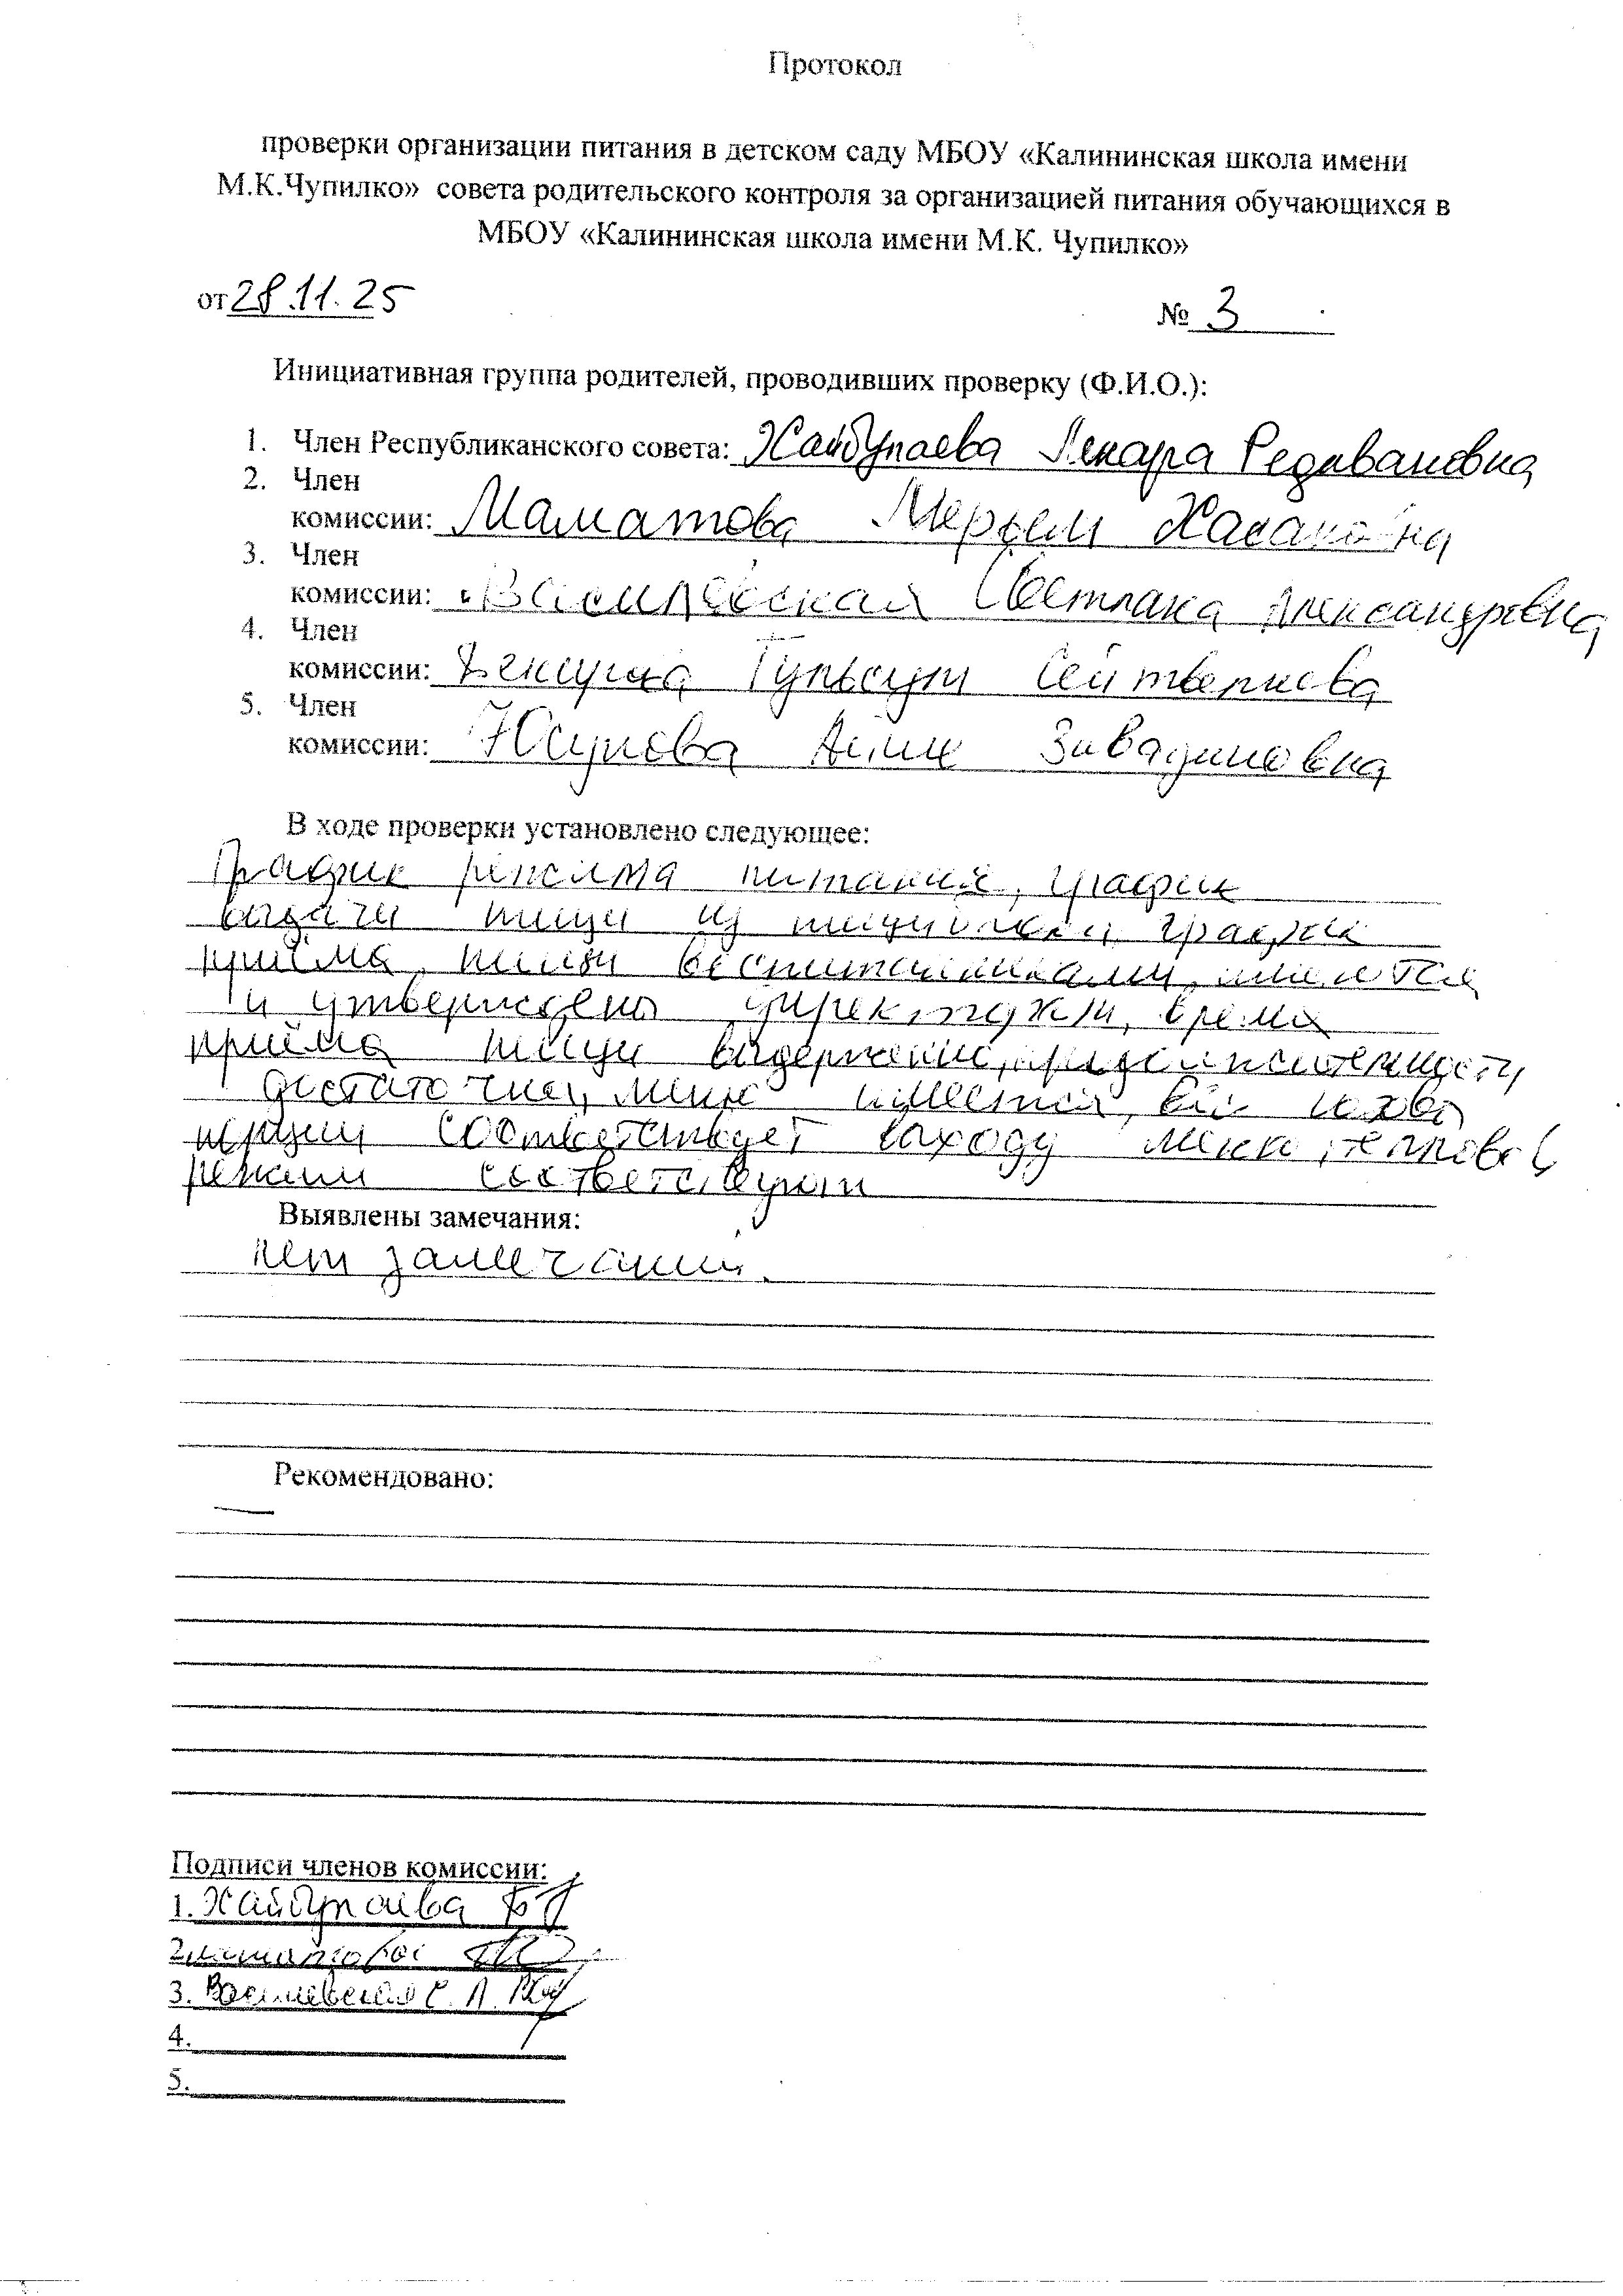 Протокол
проверки организации питания в детском саду МБОУ «Калининская школа имени
М.К.Чупилко» совета родительского контроля за организацией питания обучающихся в
МБОУ «Калининская школа имени М.К. Чупилко»
от 28.11.25
№ 3
Инициативная группа родителей, проводивших проверку (Ф.И.О.):
1. Член Республиканского совета: Хайбулаева Ленара Редвановна
2. Член
комиссии: Маматова Мерьем
3. Член
комиссии: Василевская Светлана Александровна
4. Член
комиссии: Гульсум
5. Член
комиссии: Юсупова Зивадиновна
В ходе проверки установлено следующее:
График режима питания, график
выдачи пищи из график
приёма пищи воспитанниками, имеются
и утверждены время
приёма пищи
достаточна, меню имеется,
порции соответствует выходу меню,
режим соответствуют
Выявлены замечания:
нет замечаний.
Рекомендовано:
—
Подписи членов комиссии:
1. Хайбулаева
2. Маматова
3. Василевская С. А.
4.
5.